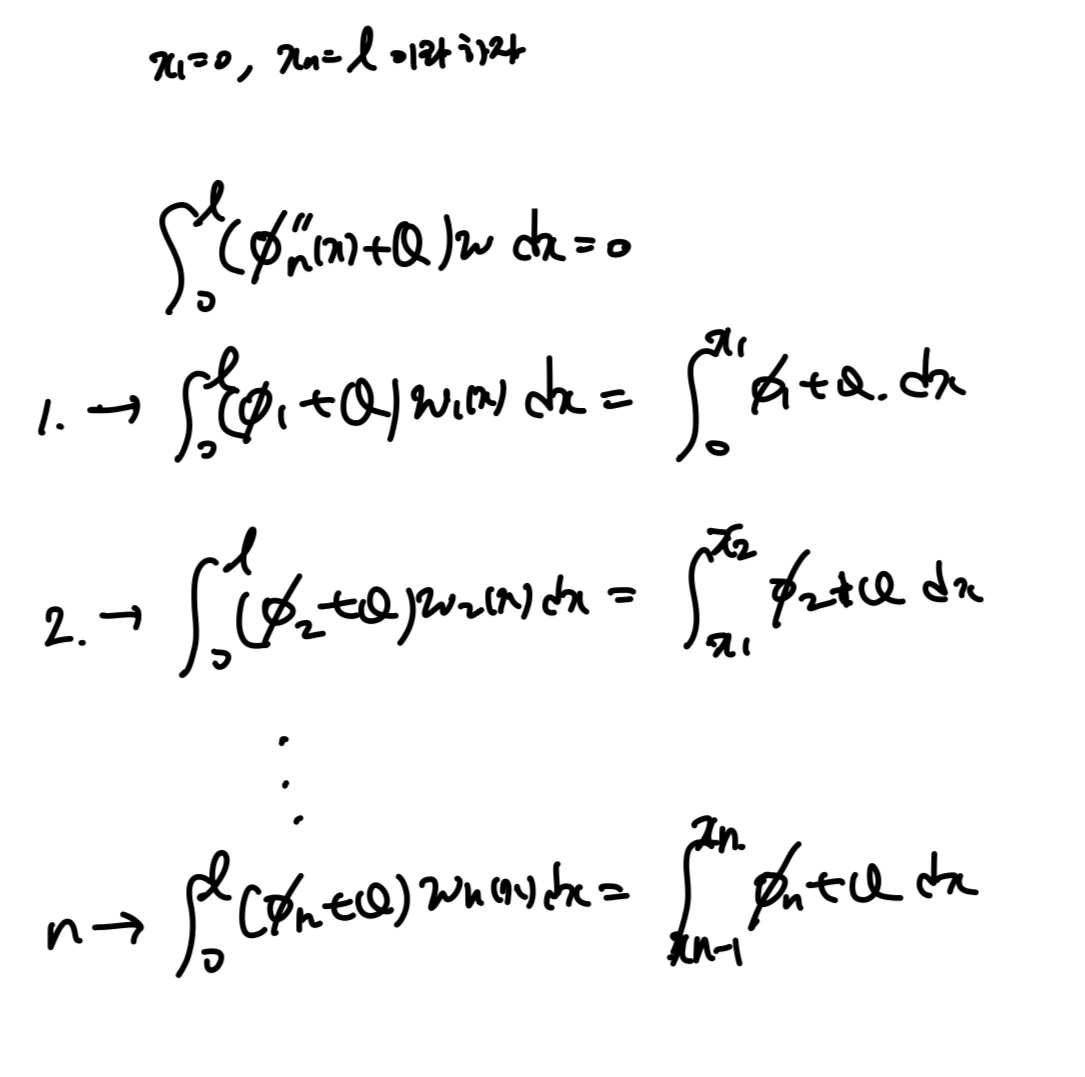 x₁=0, xₙ=l 이라 하자
∫₀ˡ(ϕₙ''(x)+Q)w dx=0
1. → ∫₀ˡ(ϕ₁+Q)w₁(x) dx = ∫₀^{x₁} ϕ₁+Q. dx
2. → ∫₀ˡ(ϕ₂+Q)w₂(x)dx = ∫_{x₁}^{x₂} ϕ₂+Q dx
⋮
n→ ∫₀ˡ(ϕₙ+Q)wₙ(x)dx = ∫_{xₙ₋₁}^{xₙ} ϕₙ+Q dx